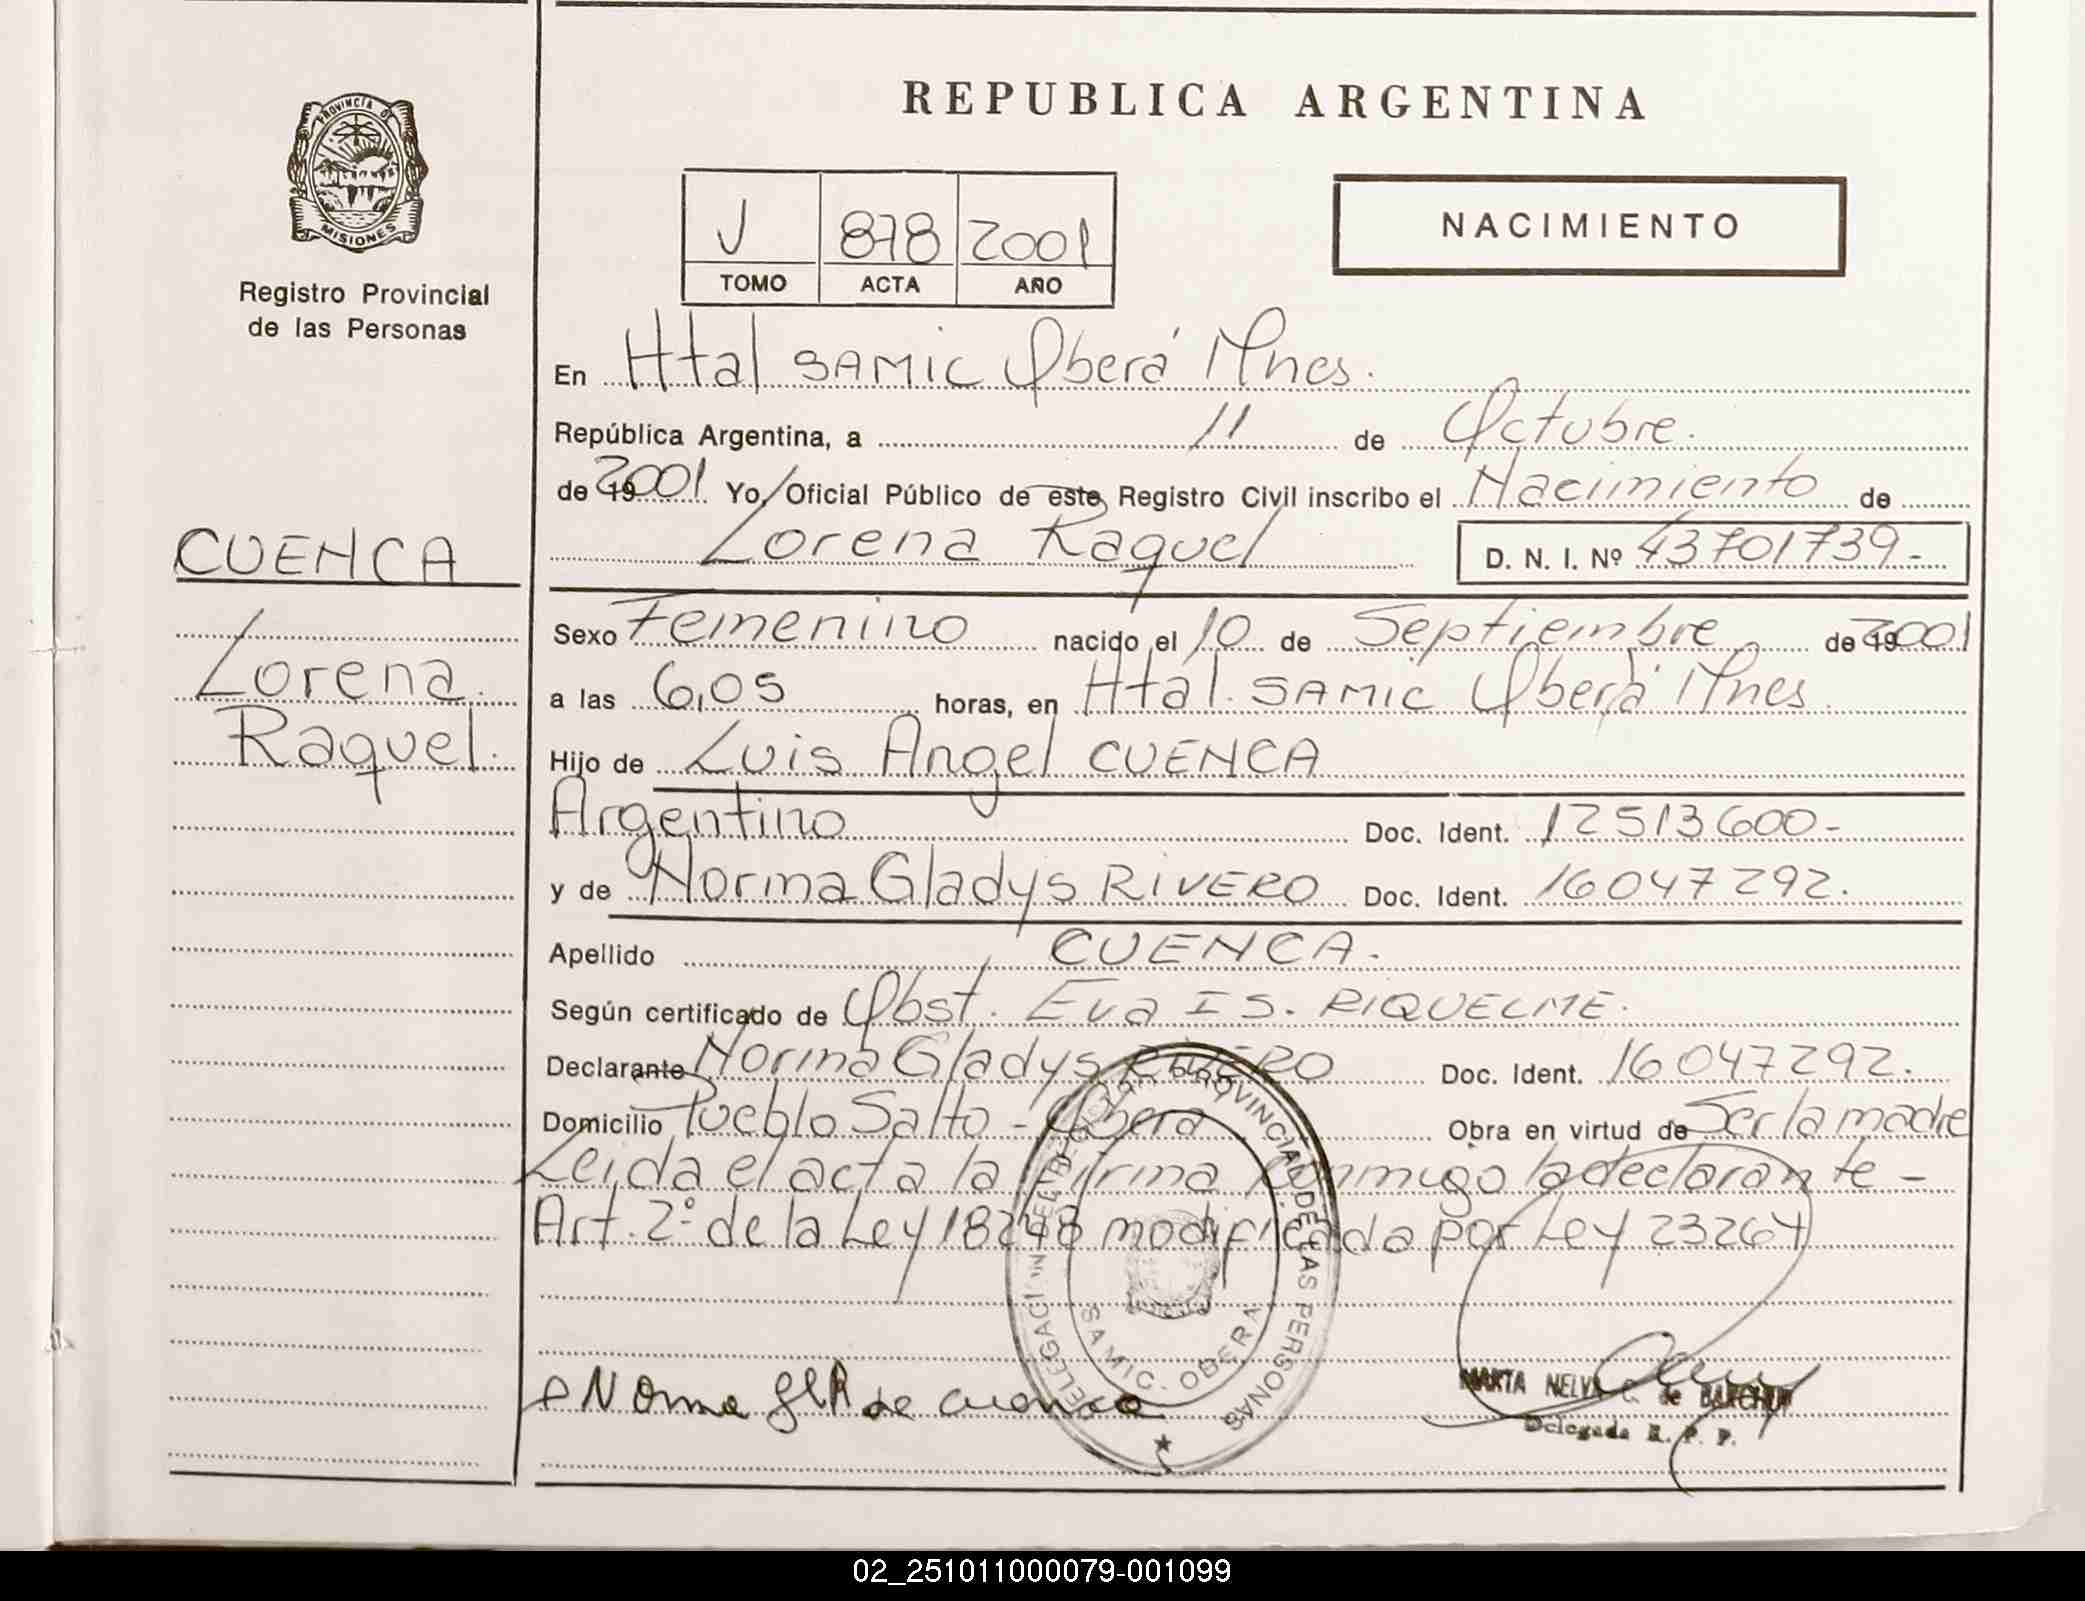 PROVINCIA DE
MISIONES
Registro Provincial
de las Personas
CUENCA
Lorena
Raquel.
REPUBLICA ARGENTINA
V 878 2001
TOMO ACTA AÑO
NACIMIENTO
En Htal SAMIC Oberá Mnes.
República Argentina, a 11 de Octubre.
de 2001 Yo, Oficial Público de este Registro Civil inscribo el Nacimiento de
Lorena Raquel D. N. I. Nº 43701739-
Sexo Femenino nacido el 10 de Septiembre de 2001
a las 6,05 horas, en Htal. SAMIC Oberá Mnes.
Hijo de Luis Angel CUENCA
Argentino Doc. Ident. 12513600-
y de Norma Gladys RIVERO Doc. Ident. 16047292.
Apellido CUENCA.
Según certificado de Obst. Eva IS. RIQUELME.
Declarante Norma Gladys RIVERO Doc. Ident. 16047292.
Domicilio Pueblo Salto - Oberá Obra en virtud de Ser la madre
Leida el acta la firma conmigo la declarante-
Art. 2º de la Ley 18248 modificada por Ley 23264
DELEGACION PROVINCIAL DE LAS PERSONAS
SAMIC. OBERA
Norma Gl R de cuenca
MARTA NELVA C. de
Delegada R. P. P.
02_251011000079-001099